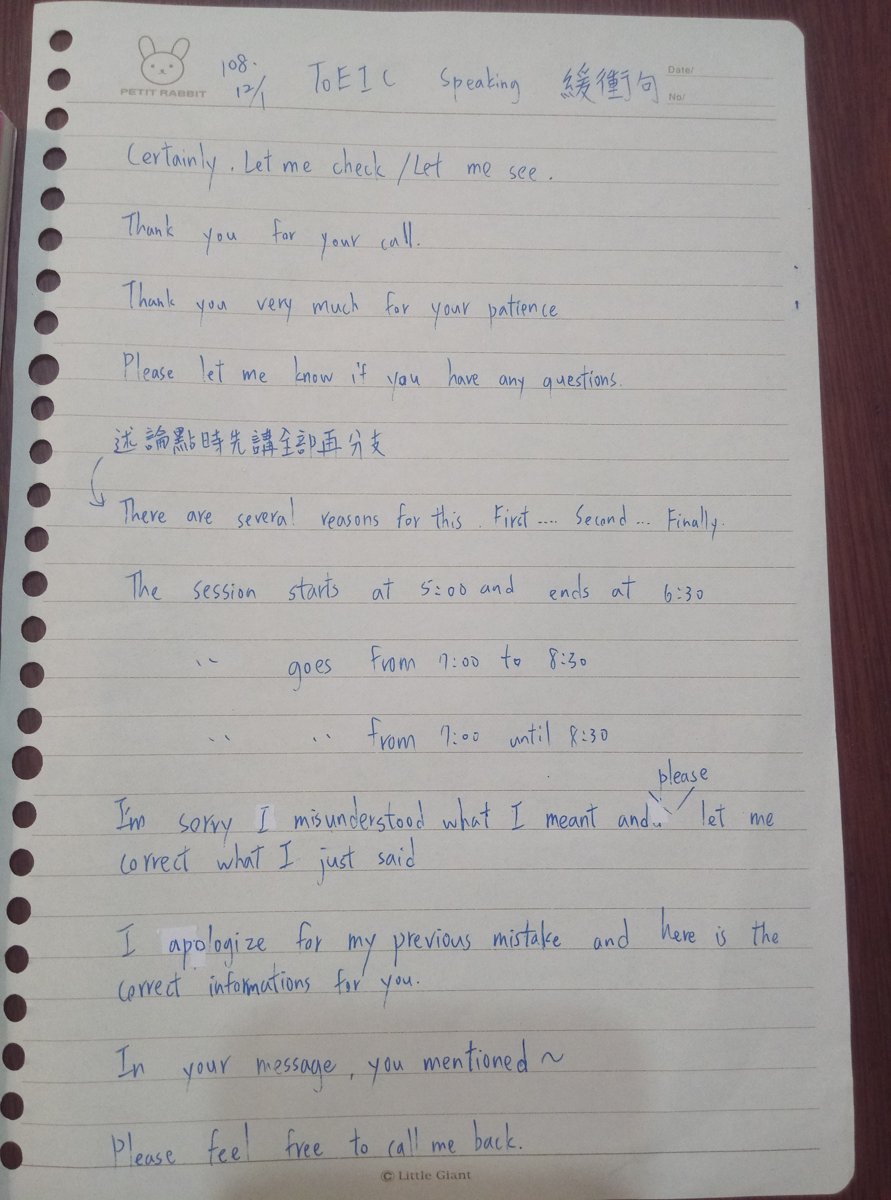 PETIT RABBIT
108.
12/1
TOEIC Speaking 緩衝句
Date/
No/
Certainly. Let me check / Let me see.
Thank you for your call.
Thank you very much for your patience
Please let me know if you have any questions.
述論點時先講全部再分支
There are several reasons for this. First .... Second ... Finally.
The session starts at 5:00 and ends at 6:30
〃 goes from 7:00 to 8:30
〃 〃 from 7:00 until 8:30
please
I'm sorry I misunderstood what I meant and let me
correct what I just said
I apologize for my previous mistake and here is the
correct informations for you.
In your message, you mentioned ~
Please feel free to call me back.
© Little Giant